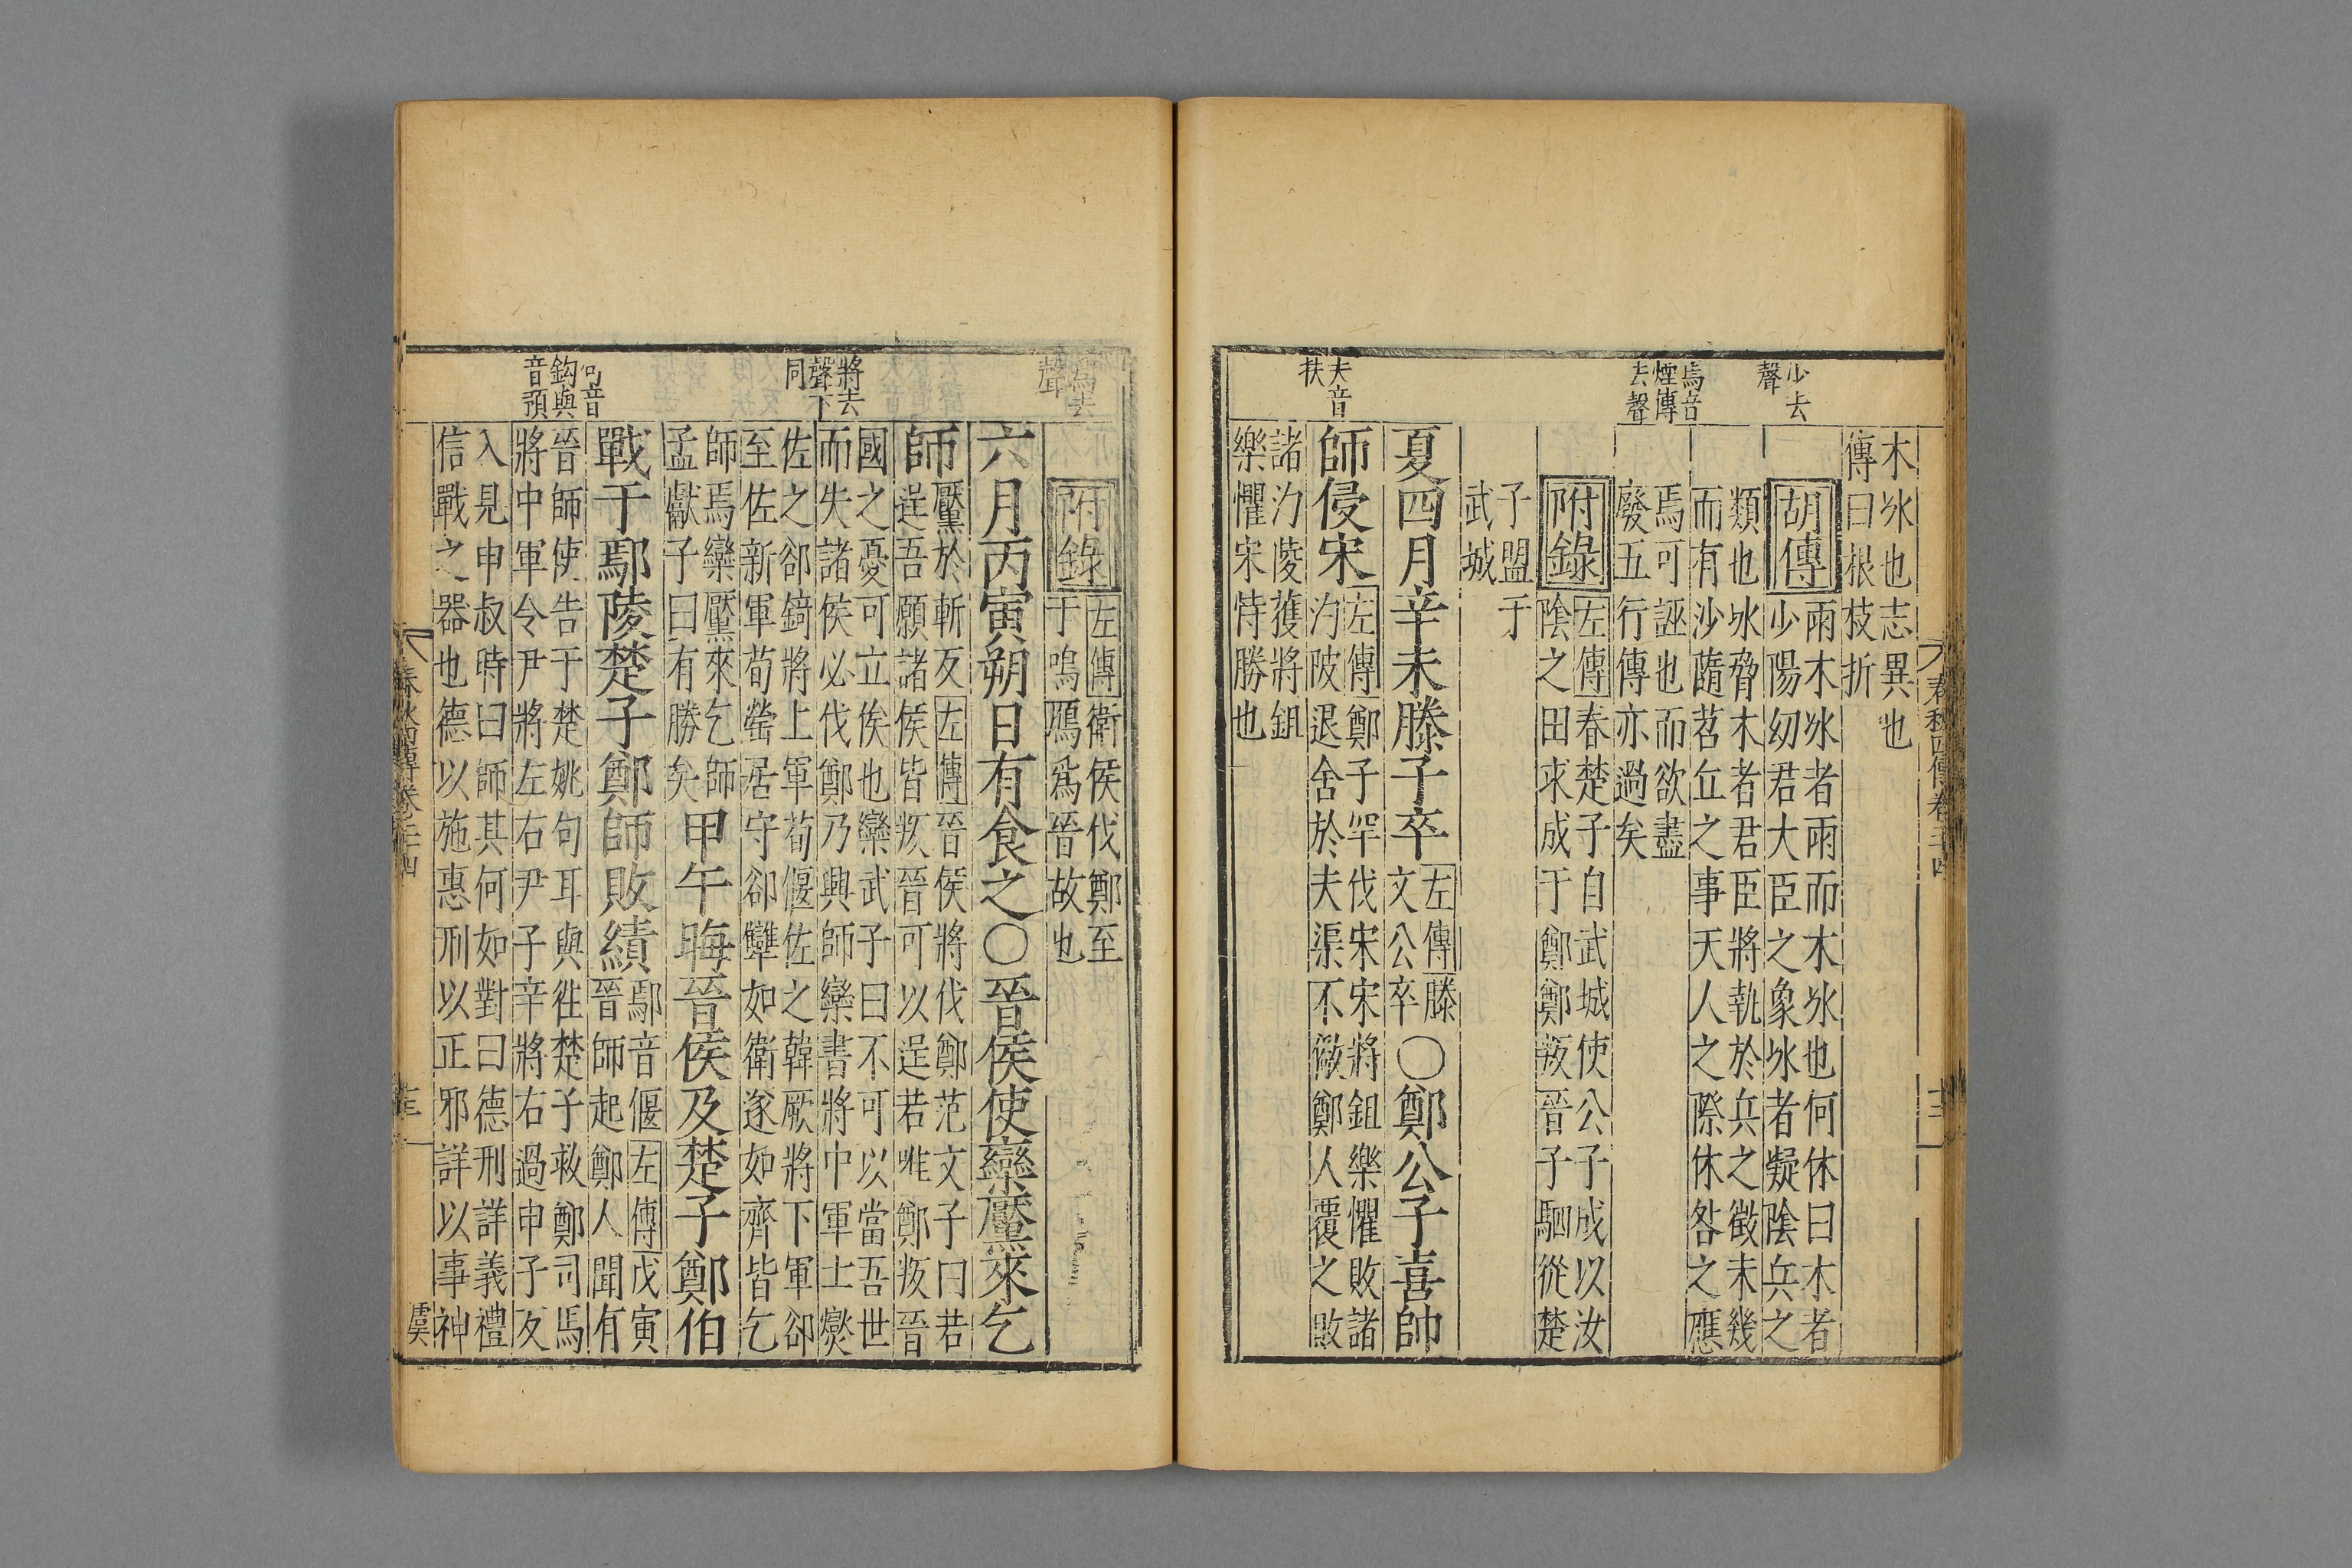 春秋四傳卷二十四
十三
少去
聲
焉音
煙傳
去聲
夫音
扶
木冰也志異也
傳曰根枝折
胡傳
雨木冰者雨而木冰也何休曰木者
少陽幼君大臣之象冰者凝陰兵之
類也冰脅木者君臣將執於兵之徵未幾
而有沙隨苕丘之事天人之際休咎之應
焉可誣也而欲盡
廢五行傳亦過矣
附錄
左傳春楚子自武城使公子成以汝
陰之田求成于鄭鄭叛晉子駟從楚
子盟于
武城
夏四月辛未滕子卒
左傳滕
文公卒
○鄭公子喜帥
師侵宋
左傳鄭子罕伐宋宋將鉏樂懼敗諸
汋陂退舍於夫渠不儆鄭人覆之敗
諸汋陵獲將鉏
樂懼宋恃勝也
爲去
聲
將去
聲下
同
句音
鈎與
音預
附錄
左傳衛侯伐鄭至
于鳴鴈爲晉故也
六月丙寅朔日有食之○晉侯使欒黶來乞
師
黶於斬反左傳晉侯將伐鄭范文子曰若
逞吾願諸侯皆叛晉可以逞若唯鄭叛晉
國之憂可立俟也欒武子曰不可以當吾世
而失諸侯必伐鄭乃興師欒書將中軍士燮
佐之郤錡將上軍荀偃佐之韓厥將下軍郤
至佐新軍荀罃居守郤犨如衛遂如齊皆乞
師焉欒黶來乞師
孟獻子曰有勝矣
甲午晦晉侯及楚子鄭伯
戰于鄢陵楚子鄭師敗績
鄢音偃左傳戊寅
晉師起鄭人聞有
晉師使告于楚姚句耳與往楚子救鄭司馬
將中軍令尹將左右尹子辛將右過申子反
入見申叔時曰師其何如對曰德刑詳義禮
信戰之器也德以施惠刑以正邪詳以事神
虞
春秋四傳卷二十四
十三